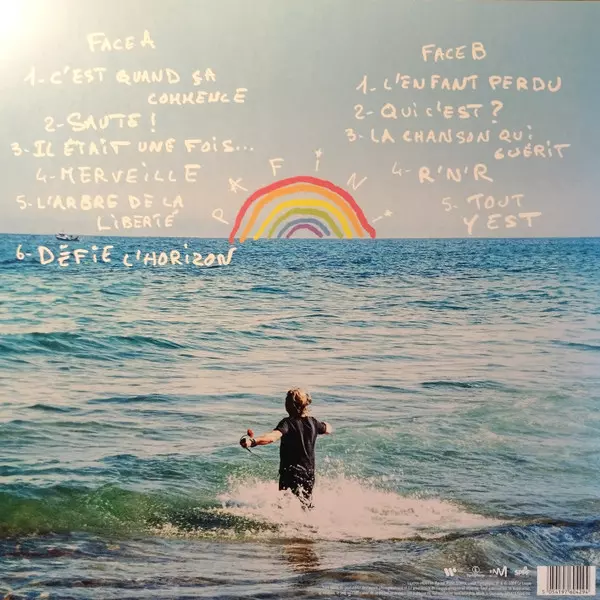 FACE A
1-C'EST QUAND ÇA
COMMENCE
2-SAUTE !
3-IL ÉTAIT UNE FOIS...
4-MERVEILLE
5-L'ARBRE DE LA
LIBERTÉ
6-DÉFIE L'HORIZON
PAFINI
FACE B
1-L'ENFANT PERDU
2-QUI C'EST ?
3-LA CHANSON QUI
GUÉRIT
4-R'N'R
5-TOUT
Y EST